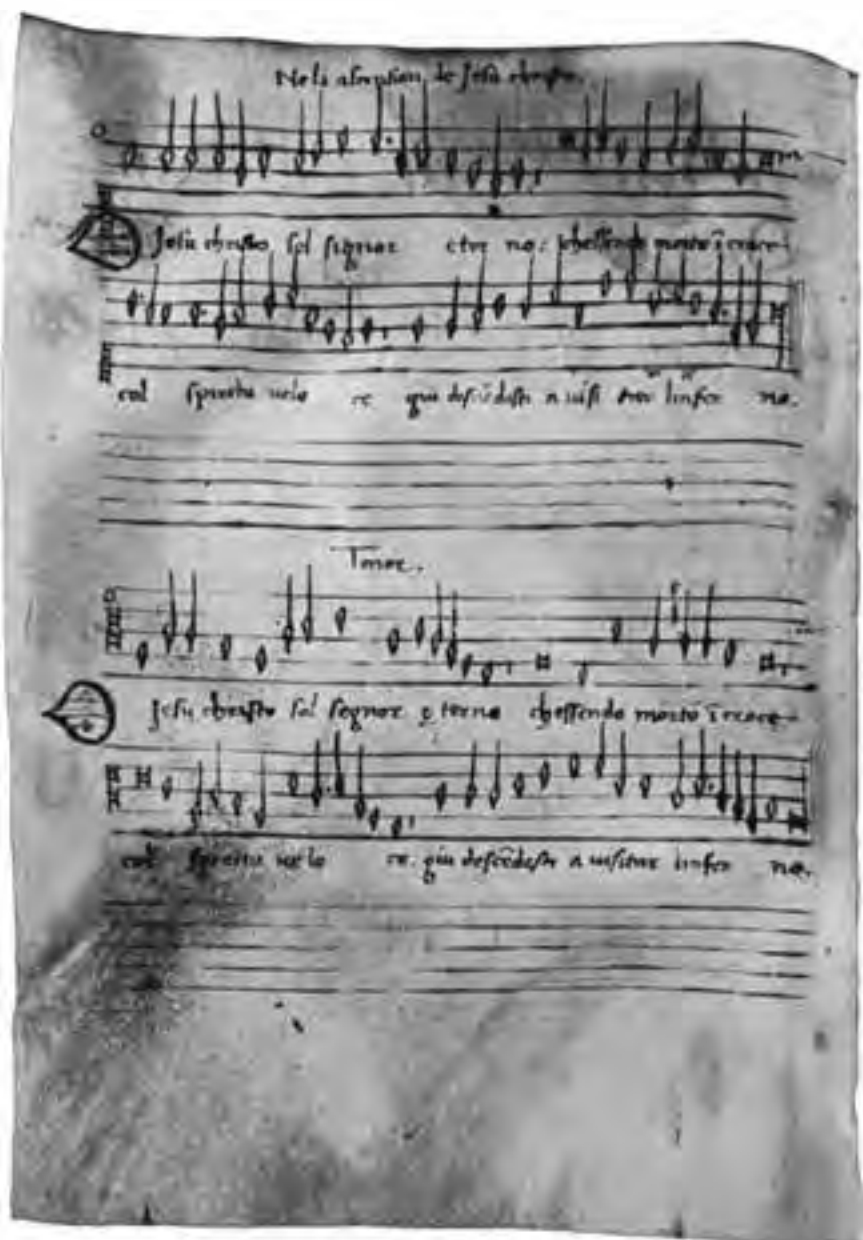 Nela de Jesu christo.
Jesu christo sol signor eter no: chessendo morto ī croce
col spirito uelo ce giu descēdesti a uisi tar linfer no.
Tenor.
Jesu christo sol segnor eterno chessendo morto ī croce
col spirito uelo ce. giu descēdesti a uisitar linfer no.